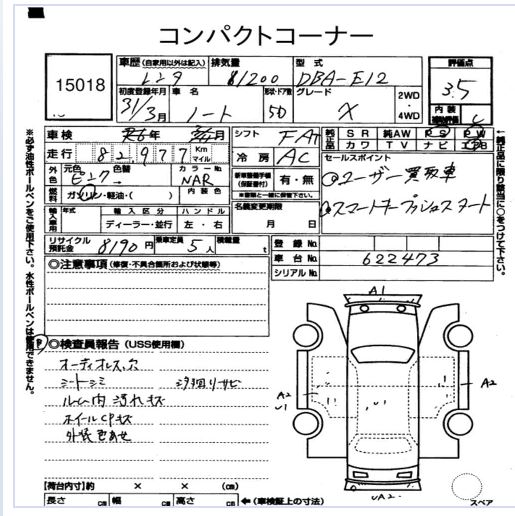 コンパクトコーナー
15018
車歴 (自家用以外は記入) レンタ
排気量 1200
型式 DBA-E12
評価点 3.5
初度登録年月 31年3月
車名 ノート
形状・ドア数 5D
グレード X
2WD
4WD
内装
補助評価
車検 年 月
シフト FAT
純正品 SR 純AW PS PW
カワ TV ナビ エアB
走行 82,977 Km マイル
冷房 AC
セールスポイント
外色 元色 色替 カラーNo. NAR 内装色
新車整備手帳(保証書付) 有・無
ユーザー買取車
燃料 ガソリン・軽油・( )
名義変更期限
月 日
スマートキープッシュスタート
輸入車用 年式 輸入区分 ハンドル
ディーラー・並行 左・右
リサイクル預託金 8190円
乗車定員 5人
積載量 t
登録No.
車台No. 622473
シリアルNo.
※必ず油性ボールペンをご使用下さい。水性ボールペンは使用できません。
←純正品に限り該当に○をつけて下さい。
◎注意事項 (修復・不具合箇所および状態等)
◎検査員報告 (USS使用欄)
オーディオレス、穴
シートシミ
ルーム内汚れキズ
ホイールCPキズ
外装色あせ
A1
A2
U1
A2
UA2
スペア
【荷台内寸】約 × × (cm)
長さ cm 幅 cm 高さ cm ←(車検証上の寸法)